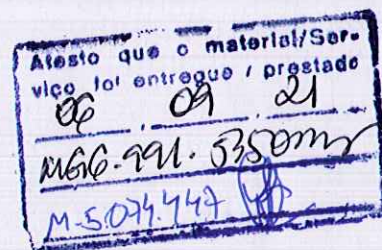 Atesto que o material/Ser-
viço foi entregue / prestado
06 09 21
MG6.991.535
M-5.074.447